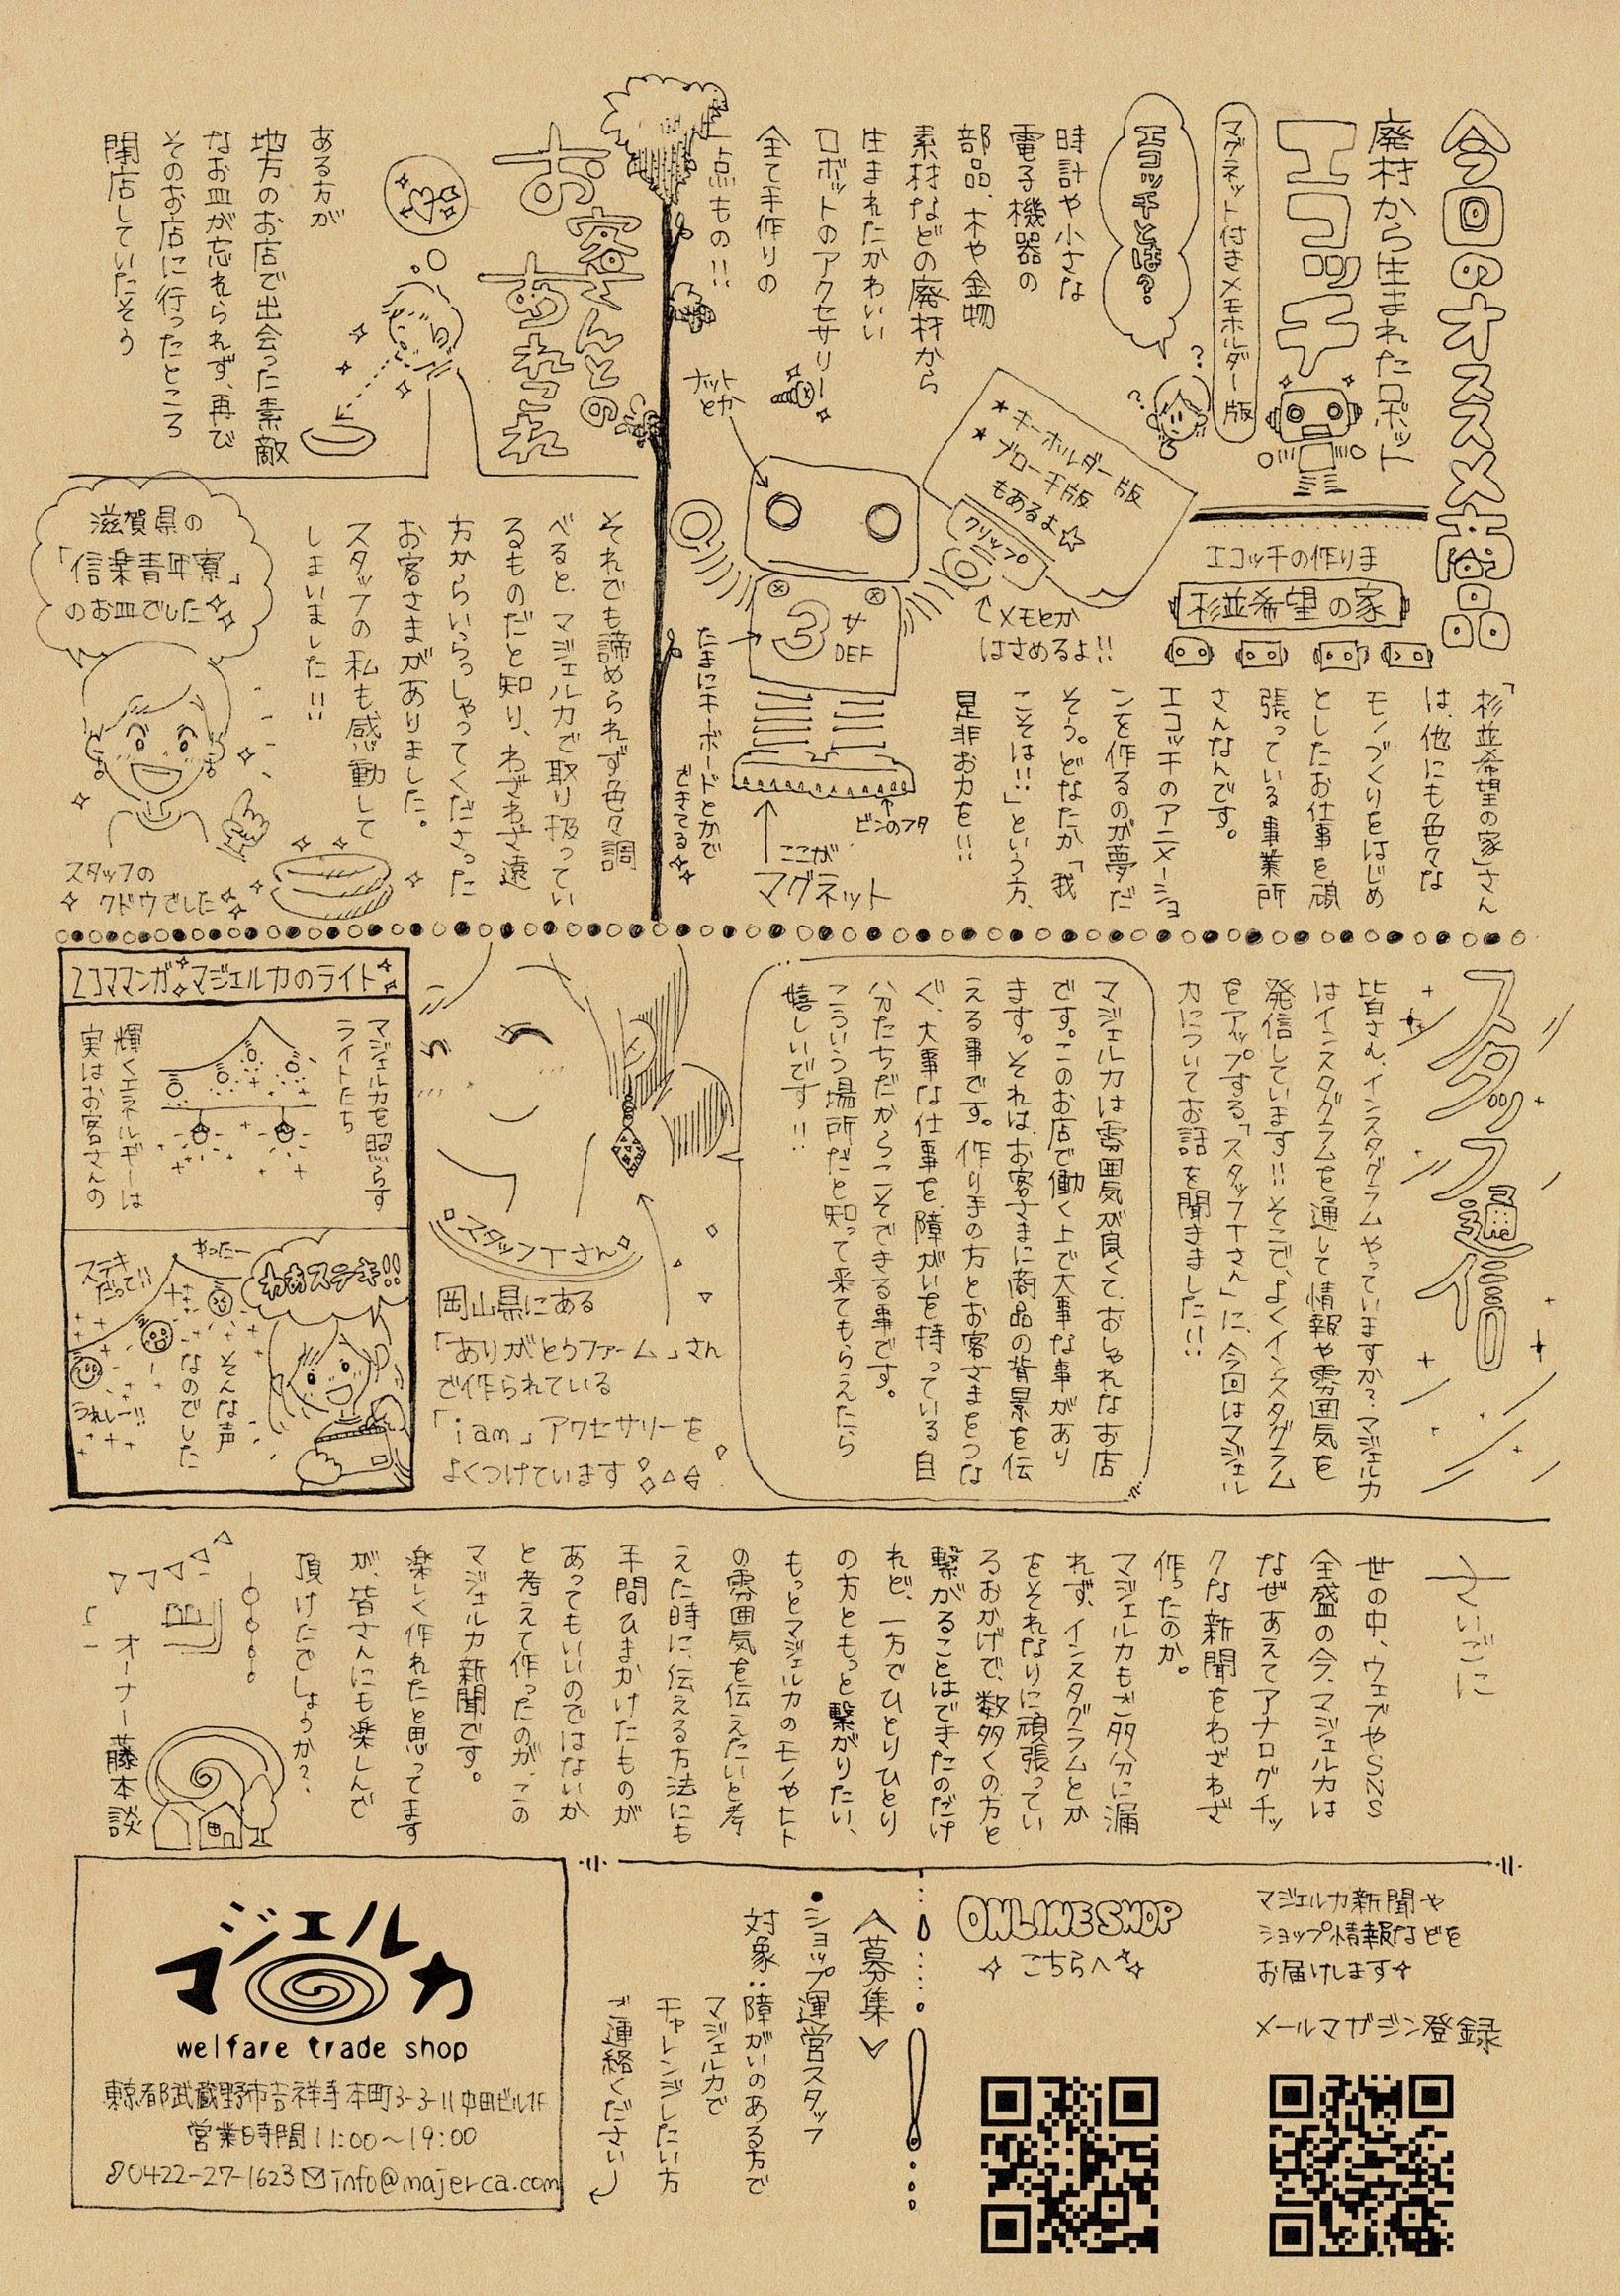 今回のオススメ商品
廃材から生まれたロボット
エコッチ
マグネット付きメモホルダー版
エコッチとは?
時計や小さな
電子機器の
部品、木や金物
素材などの廃材から
生まれたかわいい
ロボットのアクセサリー
全て手作りの
一点もの!!
★キーホルダー版
★ブローチ版
もあるよ☆
クリップ
メモとか
はさめるよ!!
ナットとか
3サ
DEF
たまにキーボードとかで
できてる
ビンのフタ
ここが
マグネット
エコッチの作りま
杉並希望の家
「杉並希望の家」さん
は、他にも色々な
モノづくりをはじめ
としたお仕事を頑
張っている事業所
さんなんです。
エコッチのアニメーショ
ンを作るのが夢だ
そう。どなたか「我
こそは!!」という方、
是非お力を!!
お客さんとの
あれこれ
ある方が
地方のお店で出会った素敵
なお皿が忘れられず、再び
そのお店に行ったところ
閉店していたそう
それでも諦められず色々調
べると、マジェルカで取り扱ってい
るものだと知り、わざわざ遠
方からいらっしゃってくださった
お客さまがありました。
スタッフの私も感動して
しまいました!!
滋賀県の
「信楽青年寮」
のお皿でした
スタッフの
クドウでした
スタッフ通信
皆さん、インスタグラムやっていますか?マジェルカ
はインスタグラムを通して情報や雰囲気を
発信しています!!そこで、よくインスタグラム
をアップする「スタッフTさん」に、今回はマジェル
カについてお話を聞きました!!
マジェルカは雰囲気が良くて、おしゃれなお店
です。このお店で働く上で大事な事があり
ます。それは、お客さまに商品の背景を伝
える事です。作り手の方とお客さまをつな
ぐ、大事な仕事を、障がいを持っている自
分たちだからこそできる事です。
こういう場所だと知って来てもらえたら
嬉しいです!!
スタッフTさん
岡山県にある
「ありがとうファーム」さん
で作られている
「i am」アクセサリーを
よくつけています
2コママンガ マジェルカのライト
マジェルカを照らす
ライトたち
輝くエネルギーは
実はお客さんの
わぁステキ!!
やったー
ステキ
だって!!
うれしー!!
そんな声
なのでした
さいごに
世の中、ウェブやSNS
全盛の今、マジェルカは
なぜあえてアナログチッ
クな新聞をわざわざ
作ったのか。
マジェルカもご多分に漏
れず、インスタグラムとか
をそれなりに頑張ってい
るおかげで、数多くの方と
繋がることはできたのだけ
れど、一方でひとりひとり
の方ともっと繋がりたい、
もっとマジェルカのモノやヒト
の雰囲気を伝えたいと考
えた時に、伝える方法にも
手間ひまかけたものが
あってもいいのではないか
と考えて作ったのが、この
マジェルカ新聞です。
楽しく作れたと思ってます
が、皆さんにも楽しんで
頂けたでしょうか?
オーナー藤本談
マジェルカ新聞や
ショップ情報などを
お届けします
メールマガジン登録
ONLINE SHOP
こちらへ
<募集>
●ショップ運営スタッフ
対象:障がいのある方で
マジェルカで
チャレンジしたい方
ご連絡ください
マジェルカ
welfare trade shop
東京都武蔵野市吉祥寺本町3-3-11中田ビル1F
営業時間11:00〜19:00
0422-27-1623 info@majerca.com